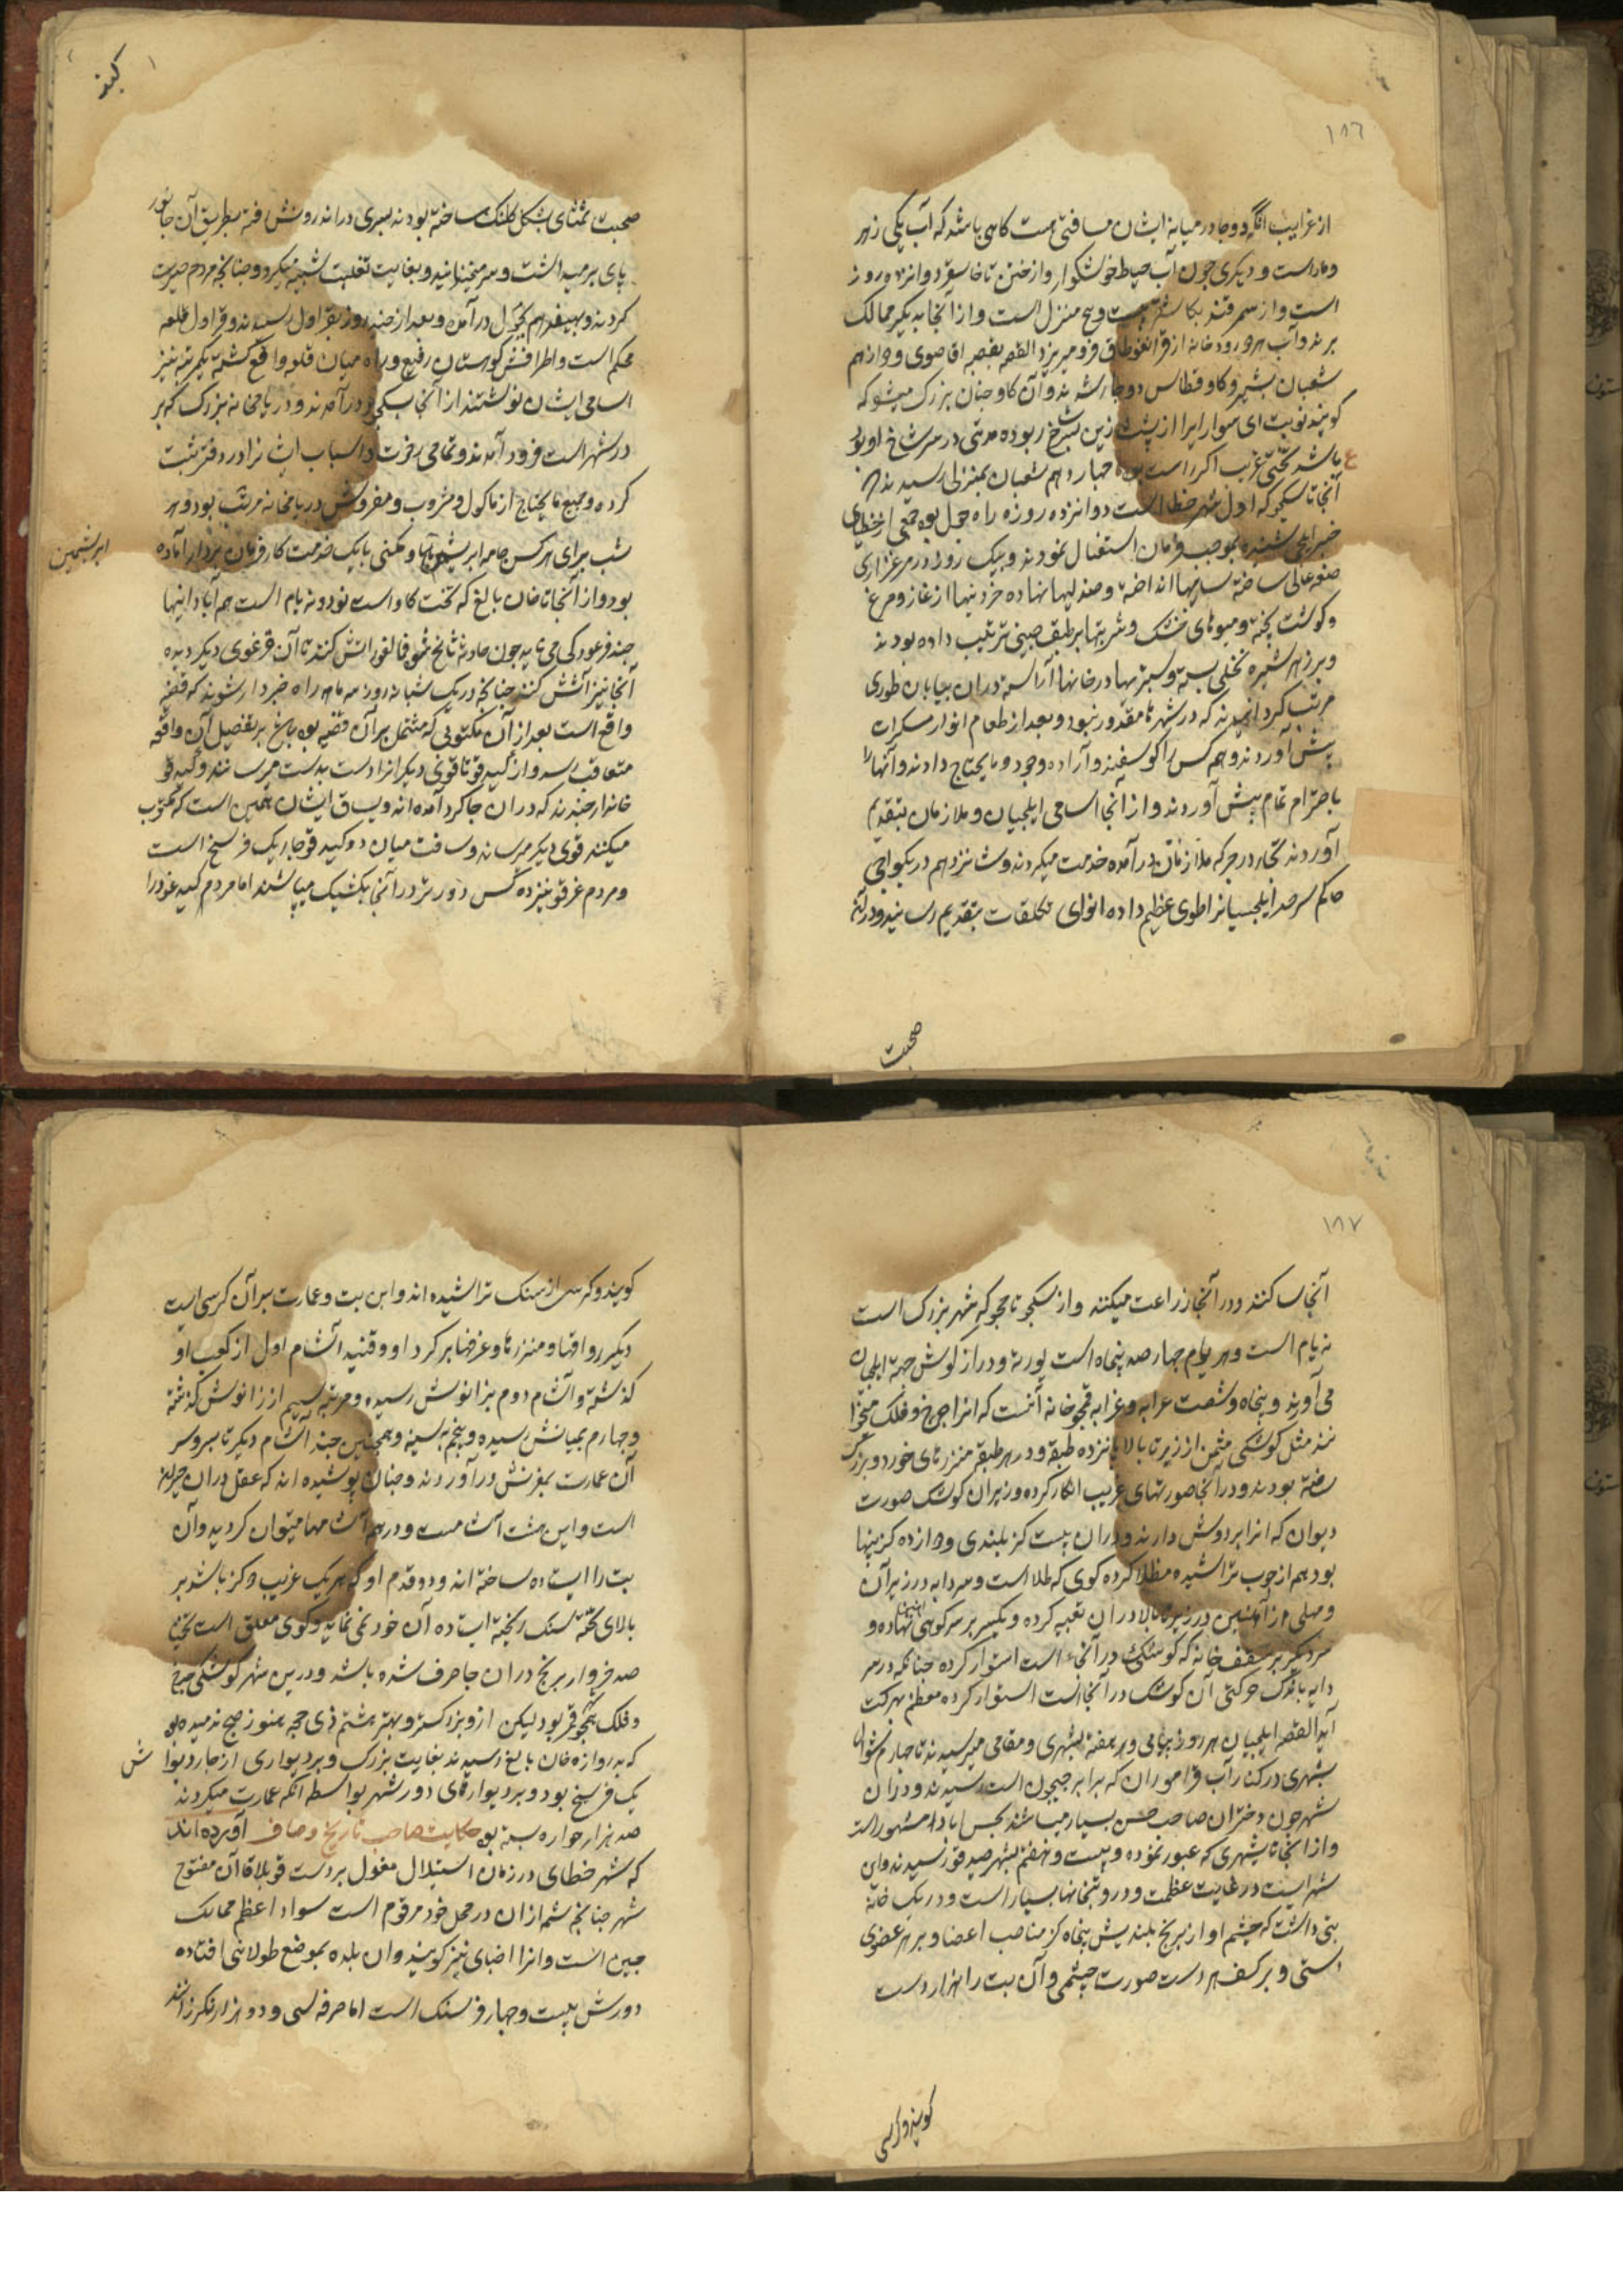 ١٨٦
از غرایب آنکه دو جا در میانه ایشان مسافتی هست کاهی باشد که آب یکی زهر
و مار است و دیکری چون آب حیات خوشکوار و از ختن تا خانسو دوازده روز
است و از سمرقند بکاشغر بیست و پنج منزل است و از آنجا به دیکر ممالک
برند و آب هر دو رودخانه از قرانغوطاق فرو میریزد القصه بقصبه اقاصوی دوازدهم
شعبان بشیر و کاو قطاس دوچار شدند و آن کاو چنان بزرک میشود که
کویند نوبتی ای سوار ایرا از پشت زین بشاخ ربوده مدتی در سر شاخ او بود
باشد سختی غریب اکر راست بود چهاردهم شعبان بمنزلی رسیدند که
آنجا تا سکجو که اول شهر خطا است دوازده روزه راه چول بود جمعی از خطایان
خبر ایلچی شنیده بموجب فرمان استقبال نمودند و بیک روز در مرغزاری
صفه عالی ساخته سایبانها انداخته و صندلیها نهاده خوردنیها از غاز و مرغ
و کوشت پخته و میوهای خشک و شربتها بر طبق چینی ترتیب داده بودند
و بر زبر شیره نخلی بسته و سبزیها در خانها آراسته در ان بیابان طوری
مرتب کردانیدند که در شهرها مقدور نبود و بعد از طعام انواع مسکرات
پیش آوردند و همه کس را کوسفند و آرد و جو و ما یحتاج دادند و آنها را
باحترام تمام پیش آوردند و از آنجا اسامی ایلچیان و ملازمان بتقدیم
آوردند تجار در جرکه ملازمان در آمده خدمت میکردند و شانزدهم در یکواجی
حاکم سرحد ایلچیان را طوی عظیم داده انواع تکلفات بتقدیم رسانید و در آن
صحبت
صحبت تمثای بشکل کلنک ساخته بودند پسری در اندرونش رفته بطریق آن جانور
پای بر میداشت و سر میجنبانید و بغایت تقلیب شبیه میکرد و چنانچه مردم حیرت
کردند و هیفدهم بچول در آمده و بعد از چند روز بقراول رسیدند و قراول قلعه
محکم است و اطرافش کوهستان رفیع و راه میان قلعه واقع کشته یکمرتبه نیز
اسامی ایشان نوشتند از آنجا بسکجو در آمدند و در یامخانه بزرک که بر
در شهر است فرود آمدند و تمامی رخوت و اسباب ایشانرا در دفتر ثبت
کرده و جمیع ما یحتاج از ماکول و مشروب و مفروش در یامخانه مرتب بود و هر
شب برای هر کس جامه ابریشم و کمنی با یک خدمت کار فرمان بردار آماده
بود و از آنجا تا خان بالغ که تخت کاه است نود و نه یام است هم آبادانیها
چند قرغو و کی می باید چون حادثه سانح شود فی الفور اتش کنند تا آن قرغوی دیکر دیده
آنجا نیز آتش کنند چنانچه در یک شبانه روز سه ماهه راه خبردار شوند که قضیه
واقع است بعد از آن مکتوبی که مشتمل بر آن قضیه بود باز بتفصیل آن واقعه
متعاقب رسد و از کیدی قو تا قوی دیکر انرا دست بدست میرسانند و کیدی قو
خانه‌دار چندند که در ان جا کرد آمده‌اند و یساق ایشان همین است که مکتوب
میکنند قوی دیکر میرسانند و مسافت میان دو کیدی قو چهار یک فرسخ است
و مردم غرقو نیز ده کس ده روز در آنجا بکشیک میباشند اما مردم کیدی خود را
ابریشمین
١٨٧
آنجا ساکنند و در آنجا زراعت میکنند و از سکجو تا قمجو که شهر بزرک است
نه یام است و هر یام چهارصد پنجاه است یورته و دراز کوش جهة ایلچیان
می آورند و پنجاه و شصت عرابه و غرابه قمجو خانه آنست که انرا چرخ و فلک میخوا
نند مثل کوشکی مثمن از زیر تا بالا پانزده طبقه و در هر طبقه منزرهای خورد و بزرک
ساخته بودند و در آنجا صورتهای غریب انکار کرده و زیر ان کوشک صورت
دیوان که انرا بر دوش دارند و دوران بیست کز بلندی دوازده کز پنها
بود هم از چوب تراشیده مطلا کرده کوی که طلا است و سردابه در زیر آن
و میلی از آهنین در زیر تا بالا دران تعبیه کرده و یکسر بر سر کوی آهنین نهاده و
سر دیکر بر سقف خانه که کوشکی در آنجا است استوار کرده چنانکه در سر
دابه باندک حرکتی آن کوشک در آنجا است استوار کرده معظم بحرکت
آید القصه ایلچیان هر روز بیامی و هر هفته بشهری و مقامی میرسیدند تا چهارم شوال
بشهری در کنار آب قراموران که برابر جیحون است رسیدند و در ان
شهر چون دختران صاحب حسن بسیار میباشند بحسن آباد مشهور است
و از آنجا تا بشهری که عبور نموده و بیست و هفتم بشهر صدفور رسیدند و این
شهریست در غایت عظمت و در و بتخانها بسیار است و در یک خانه
بتی داشت که چشم او از برنج بلندیش پنجاه کز مناصب اعضا و بر هر عضوی
دستی و بر کف هر دست صورت چشمی و آن بت را هزار دست
کویند و کرسی
کویند و کرسی از سنک تراشیده اند و این بت و عمارت بر آن کرسی است
دیکر رواقها و منزرها و غرفها بر کرد او و قنیه اتشام اول از کعب او
کذشته و اتشام دوم بزانوش رسیده و مرتبه سیم از زانوش کذشته
و چهارم بمیانش رسیده و پنجم به سینه و همچنین چند اشام دیکر تا بسر و سر
آن عمارت بمغزش در آوردند و چنان پوشیده اند که عقل در ان حیران
است و این هشت اشام است و در همه اشامها میتوان کردید و آن
بت را ایستاده ساخته اند و دو قدم او که هر یک غریب ده کز باشد بر
بالای تخته سنک ریخته ایستاده آن خود نمی نماید و کوی معلق است تخمینا
صد خروار برنج در ان جا صرف شده باشد و در این شهر کوشکی چرخ
و فلک بنحو قمر بود لیکن ازو بزرکتر و بهتر بیشتم ذی حجه هنوز صبح ندمیده بود
که بدروازه خان بالغ رسیدند بغایت بزرک و بر دیواری از چار دیوا ش
یک فرسخ بود و بر دیوارهای دور شهر بواسطه آنکه عمارت میکردند
صد هزار خواره بسته بود حکایت صاحب تاریخ وصاف آورده اند
که شهر خطای در زمان استیلال مغول بر دست قوبلاقاآن مفتوح
شهر چنانچه شمه از ان در محل خود مرقوم است سواد اعظم ممالک
چین است و انرا اضبای نیز کویند و ان بلده بموضع طولانی افتاده
دورش بیست و چهار فرسنک است اما حرفه سی و دو هزار رنکرزانند